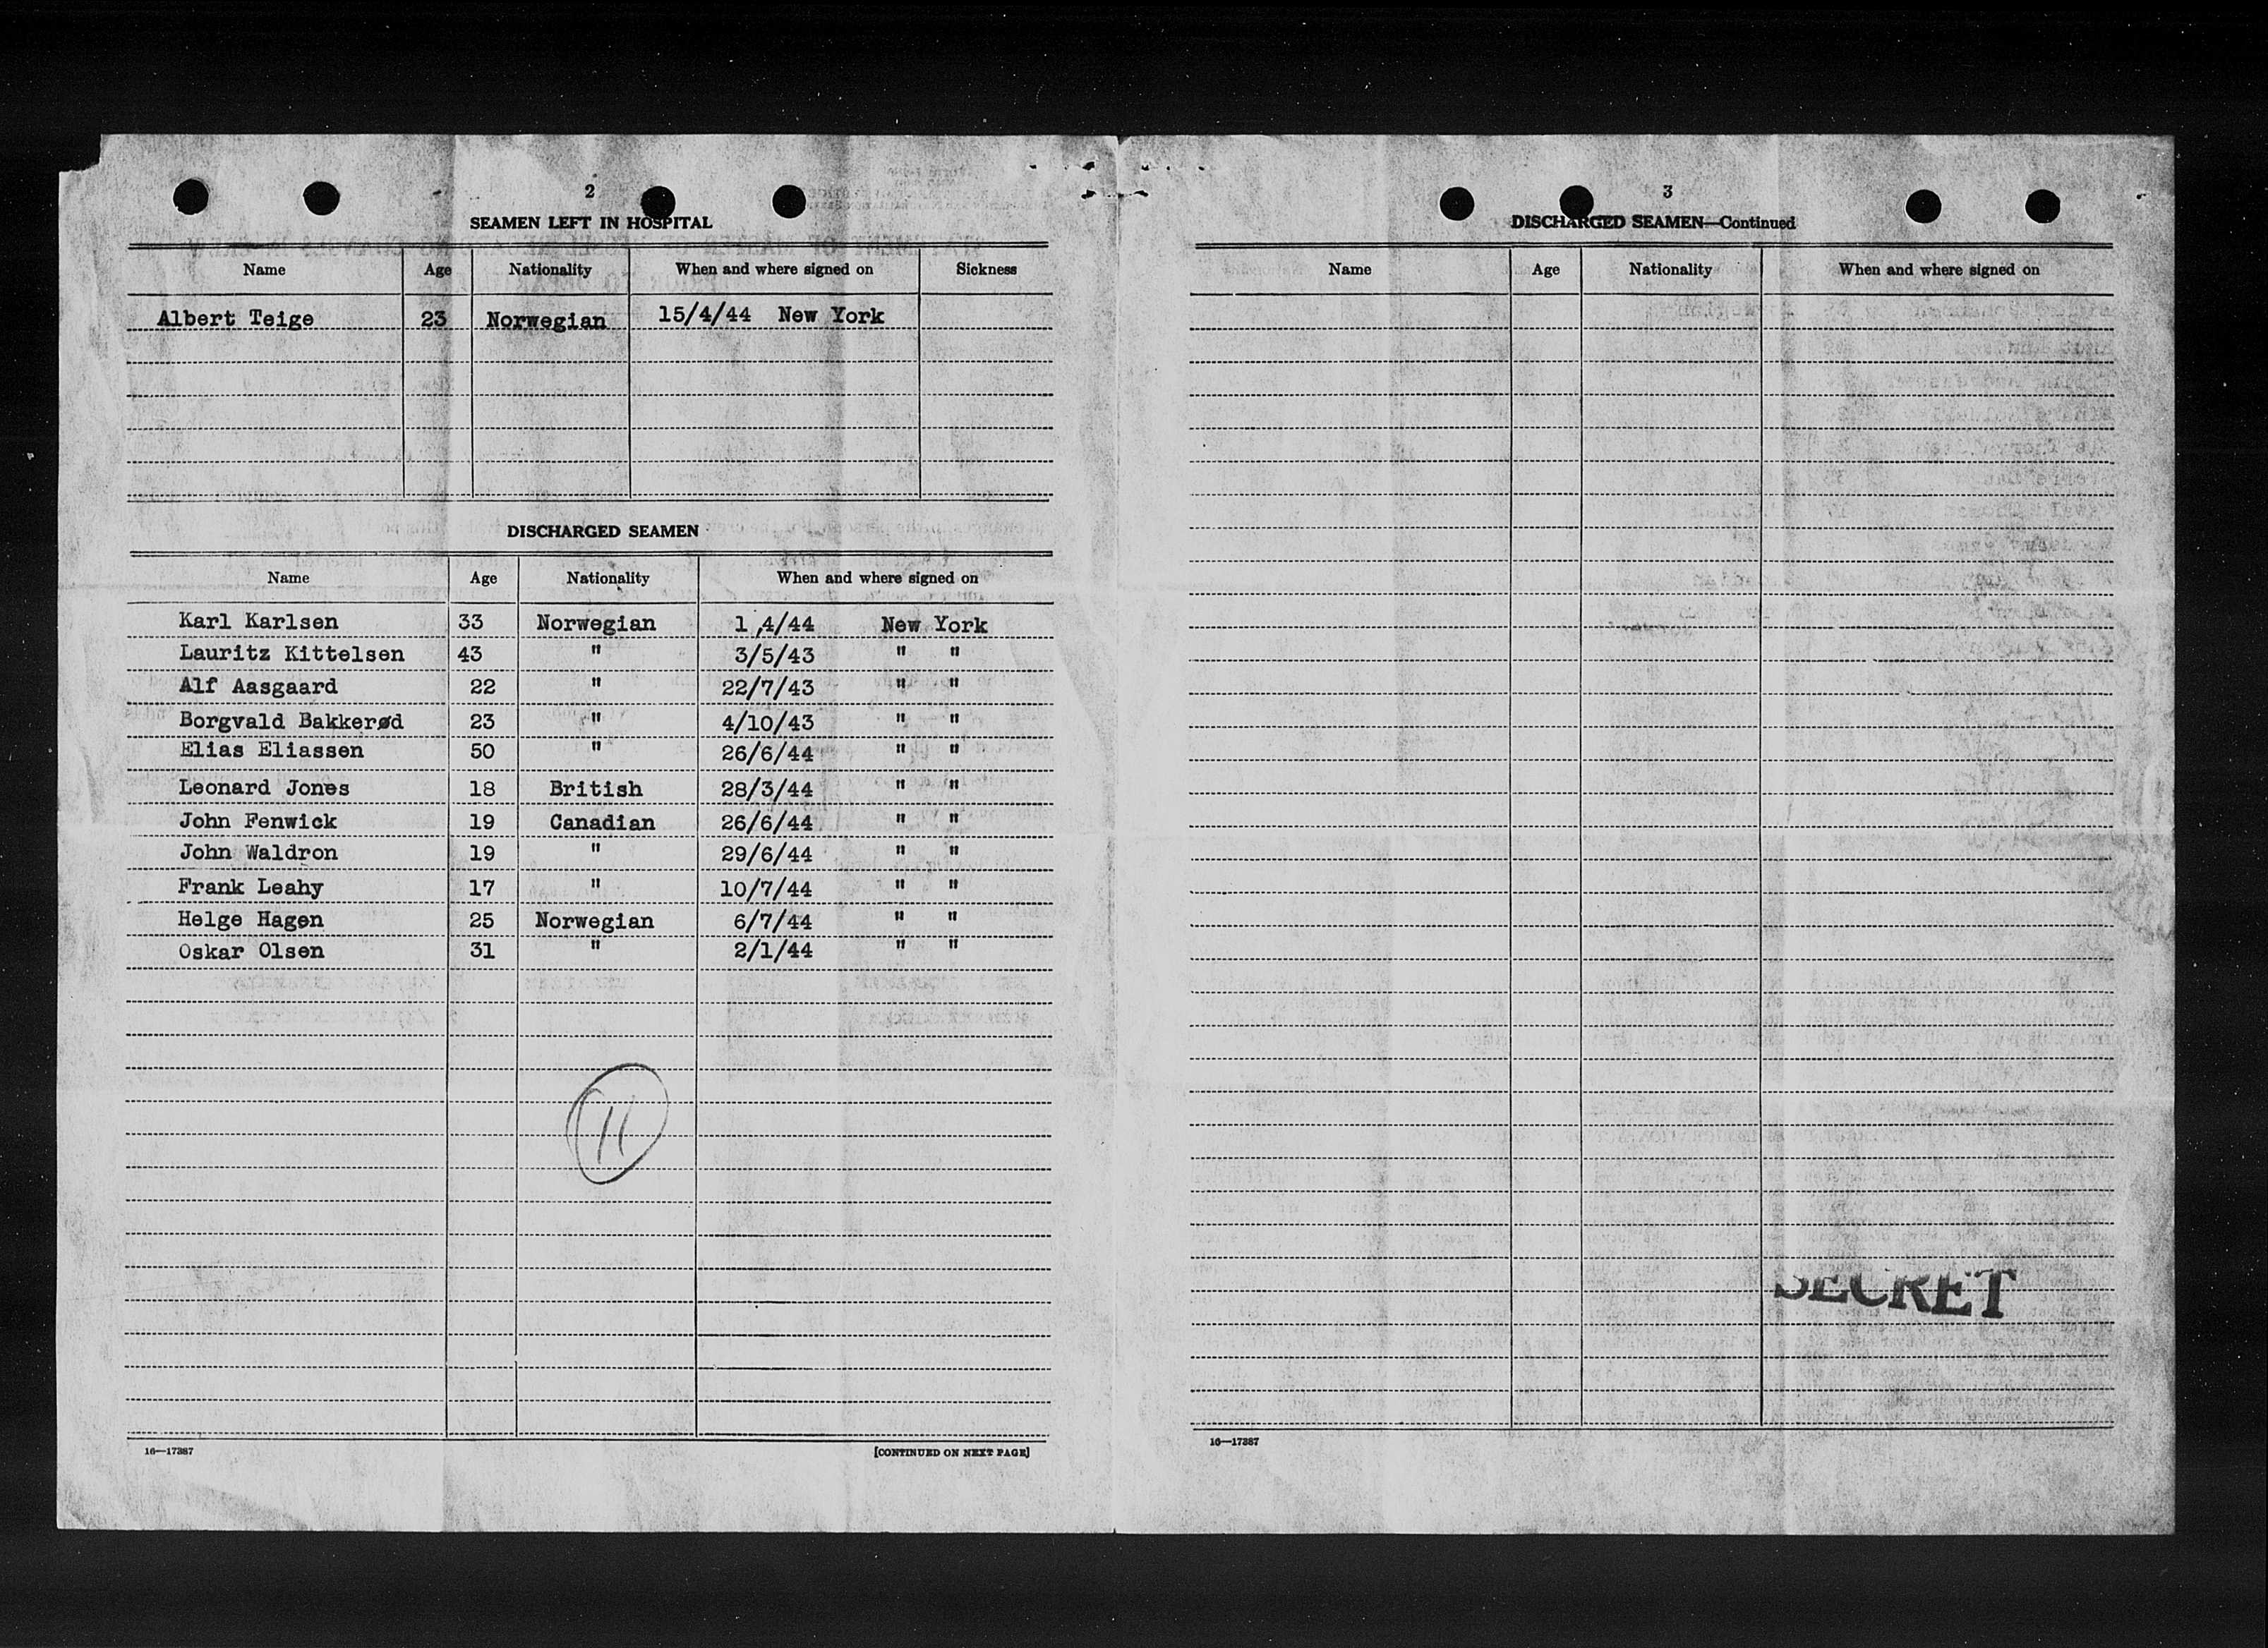 2
SEAMEN LEFT IN HOSPITAL
Name Age Nationality When and where signed on Sickness
Albert Teige 23 Norwegian 15/4/44 New York
DISCHARGED SEAMEN
Name Age Nationality When and where signed on
Karl Karlsen 33 Norwegian 1,4/44 New York
Lauritz Kittelsen 43 " 3/5/43 " "
Alf Aasgaard 22 " 22/7/43 " "
Borgvald Bakkerød 23 " 4/10/43 " "
Elias Eliassen 50 " 26/6/44 " "
Leonard Jones 18 British 28/3/44 " "
John Fenwick 19 Canadian 26/6/44 " "
John Waldron 19 " 29/6/44 " "
Frank Leahy 17 " 10/7/44 " "
Helge Hagen 25 Norwegian 6/7/44 " "
Oskar Olsen 31 " 2/1/44 " "
11
16—17387 [CONTINUED ON NEXT PAGE]
3
DISCHARGED SEAMEN—Continued
Name Age Nationality When and where signed on
SECRET
16—17387